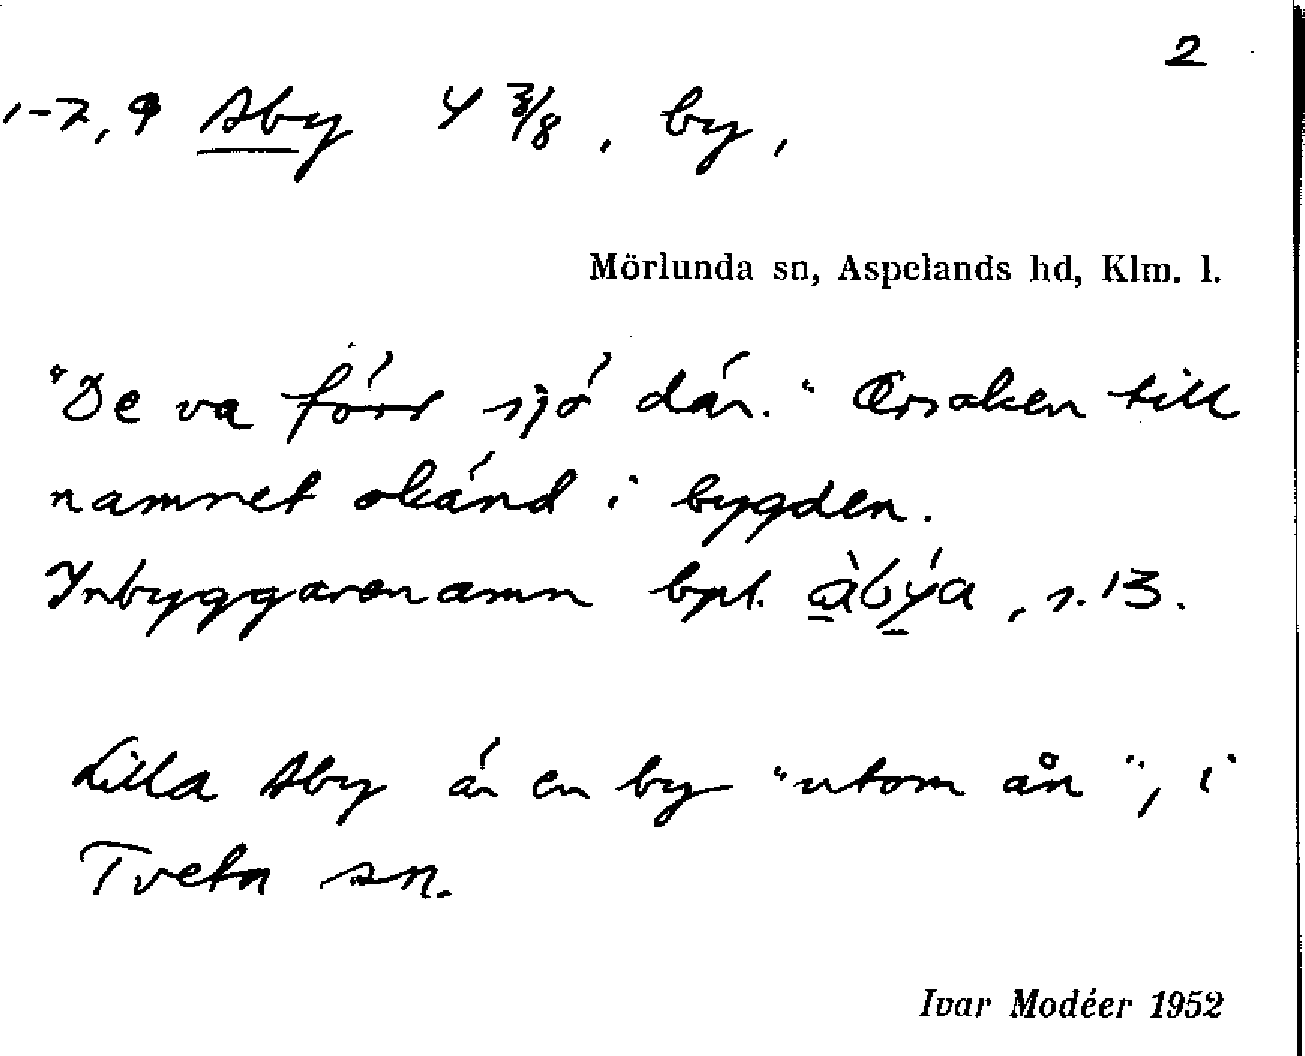 2
1-7, 9 Åby 4 3/8, by,
Mörlunda sn, Aspelands hd, Klm. l.
"De va förr sjö där." Orsaken till
namnet okänd i bygden.
Inbyggarenamn bpl. åbya, s. 13.
Lilla Åby är en by "utom ån", i
Tveta sn.
Ivar Modéer 1952